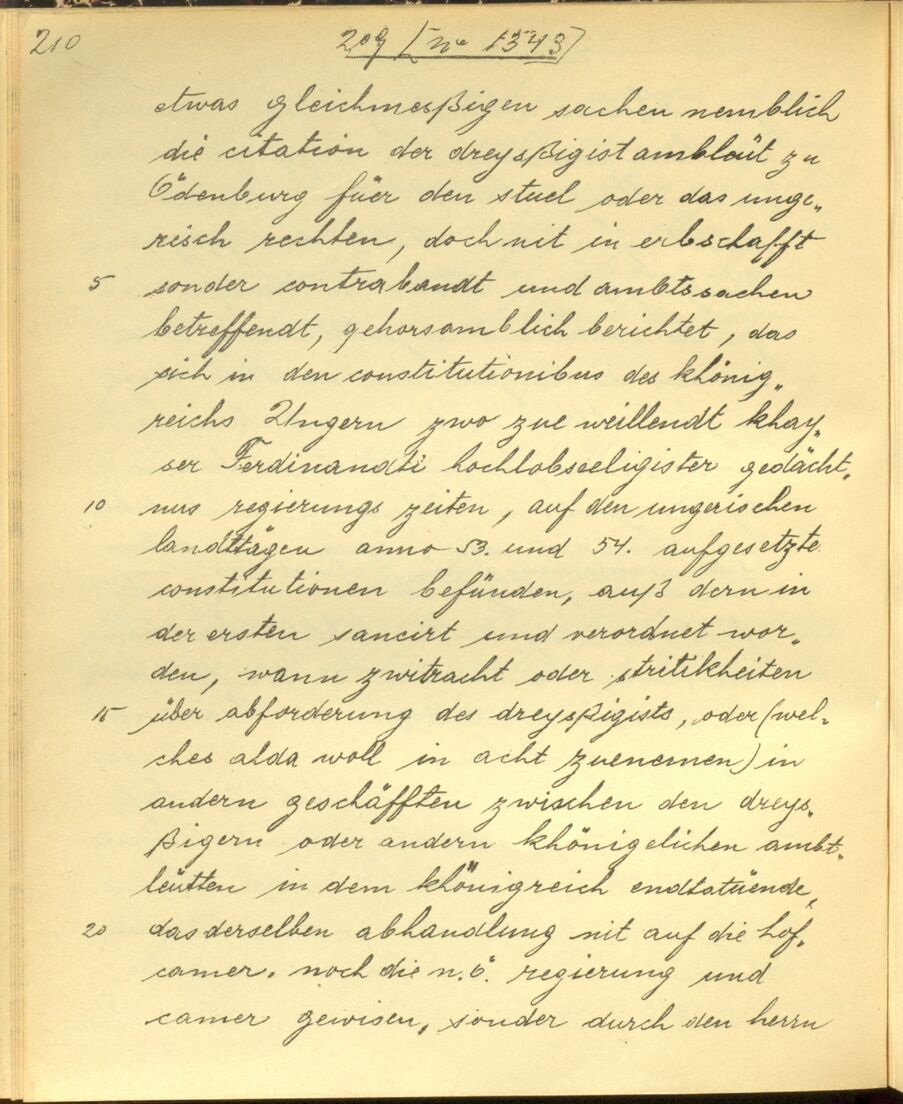 210
209 [nº 1543]
etwas gleichmesßigen sachen nemblich
die citation der dreysßigist ambleüt zu
Ödenburg füer den stuel oder das unge„
risch rechten, doch nit in erbschafft
5 sonder contrabandt und ambtssachen
betreffendt, gehorsamblich berichtet, das
sich in den constitutionibus des khönig„
reichs Ungern zwo zue weillendt khay„
ser Ferdinandti hochlobseeligister gedächt„
10 nus regierungs zeiten, auf den ungerischen
landttägen anno 53. und 54. aufgesetzte
constitutionen befünden, auß dern in
der ersten sancirt und verordnet wor„
den, wann zwitracht oder stritikheiten
15 über abforderung des dreysßigists, oder (wel„
ches alda woll in acht zuenemen) in
andern geschäfften zwischen den dreys„
ßigern oder andern khönigelichen ambt„
leütten in dem khönigreich endtstüende,
20 das derselben abhandlung nit auf die hof„
camer, noch die n.ö. regierung und
camer gewisen, sonder durch den herrn